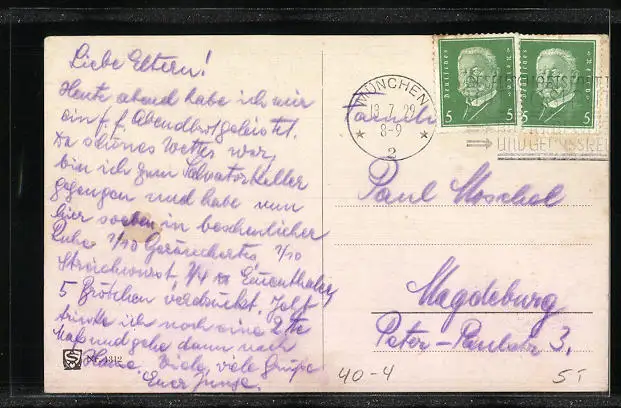 Liebe Eltern!
Heute abend habe ich mir
ein f. f. Abendbrot geleistet.
Da schönes Wetter war,
bin ich zum Salvatorkeller
gegangen und habe nun
hier soeben in beschaulicher
Ruhe 1/10 Geräuchertes, 1/10
Streichwurst, 1/4 Emmenthaler,
5 Brötchen verdrückt. Jetzt
trinke ich noch eine 2te
Maß und gehe dann nach
Hause. Viele, viele Grüße
Euer Junge.
Nr. 1312
MÜNCHEN
13.7.29
8-9
2
Deutsches Reich
5 5
Deutsches Reich
5 5
UND GENUSSREICH
Familie
Paul Moschel
Magdeburg
Peter-Paulstr 3.
40-4
5T